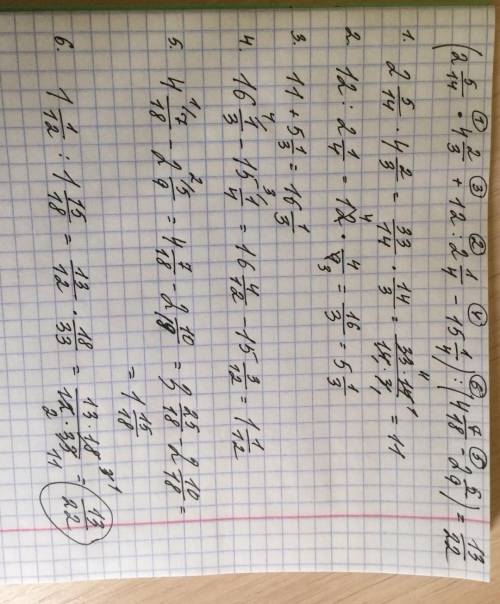 (2 5/14 · 4 2/3 + 12 : 2 1/4 − 15 1/4) : (4 7/18 − 2 5/9) = 13/22
1. 2 5/14 · 4 2/3 = 33/14 · 14/3 = 33·14/14·3 = 11
2. 12 : 2 1/4 = 12 · 4/9 = 16/3 = 5 1/3
3. 11 + 5 1/3 = 16 1/3
4. 16 1/3 − 15 1/4 = 16 4/12 − 15 3/12 = 1 1/12
5. 4 7/18 − 2 5/9 = 4 7/18 − 2 10/18 = 3 25/18 − 2 10/18 =
= 1 15/18
6. 1 1/12 : 1 15/18 = 13/12 · 18/33 = 13·18/12·33 = 13/22